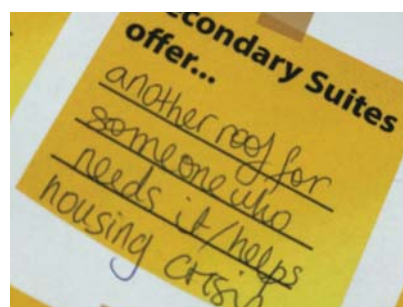 Secondary Suites
offer...
another roof for
someone who
needs it/helps
housing crisis